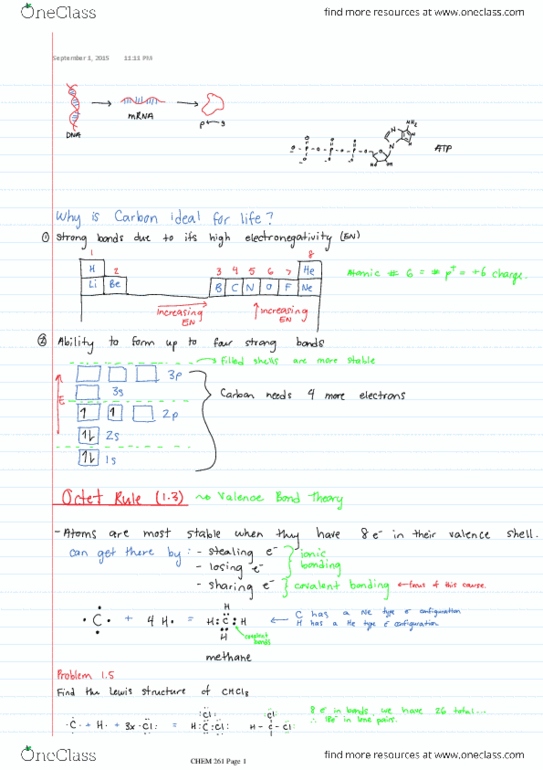 OneClass
find more resources at www.oneclass.com
September 3, 2015 11:11 PM
DNA
mRNA
ATP
Why is Carbon ideal for life?
① Strong bonds due to its high electronegativity (EN)
1 8
H 2 3 4 5 6 7 He
Li Be B C N O F Ne
Atomic # 6 = # p+ = +6 charge.
increasing EN
↑increasing EN
② Ability to form up to four strong bonds
filled shells are more stable
3p
3s
2p
2s
1s
E
Carbon needs 4 more electrons
Octet Rule (1.3) ~> Valence Bond Theory
- Atoms are most stable when they have 8 e- in their valence shell.
can get there by: - stealing e-
- losing e-
ionic bonding
- sharing e- covalent bonding ← focus of this course.
·C· + 4 H· = H:C:H
H
H
covalent bonds
← C has a Ne type e- configuration
H has a He type e- configuration
methane
Problem 1.5
Find the Lewis structure of CHCl3
·C· + H· + 3x ·Cl: = H:C:Cl: H-C-Cl:
:Cl:
:Cl:
8 e- in bonds, we have 26 total...
∴ 18e- in lone pairs.
OneClass
CHEM 261 Page 1
find more resources at www.oneclass.com